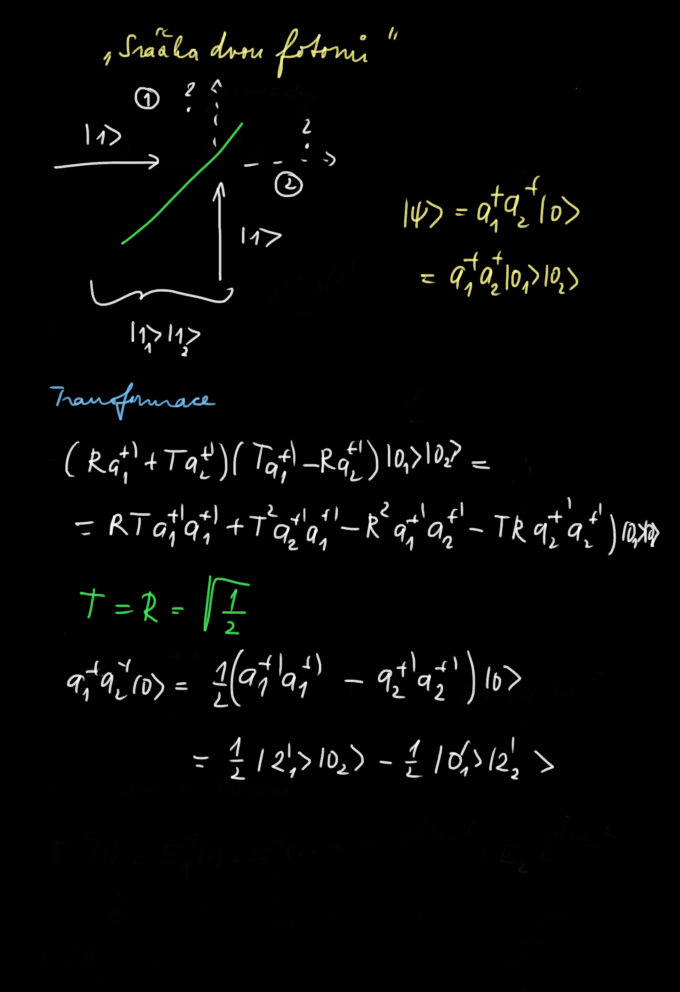 „Srážka dvou fotonů“
① ?
|1⟩
?
②
|1⟩
|1₁⟩|1₂⟩
|ψ⟩ = a₁⁺a₂⁺|0⟩
= a₁⁺a₂⁺|0₁⟩|0₂⟩
Transformace
(Ra₁⁺' + Ta₂⁺')(Ta₁⁺' − Ra₂⁺')|0₁⟩|0₂⟩ =
= RTa₁⁺'a₁⁺' + T²a₂⁺'a₁⁺' − R²a₁⁺'a₂⁺' − TRa₂⁺'a₂⁺')|0₁⟩|0₂⟩
T = R = √(1/2)
a₁⁺a₂⁺|0⟩ = 1/2(a₁⁺'a₁⁺' − a₂⁺'a₂⁺')|0⟩
= 1/2|2₁'⟩|0₂⟩ − 1/2|0₁'⟩|2₂'⟩